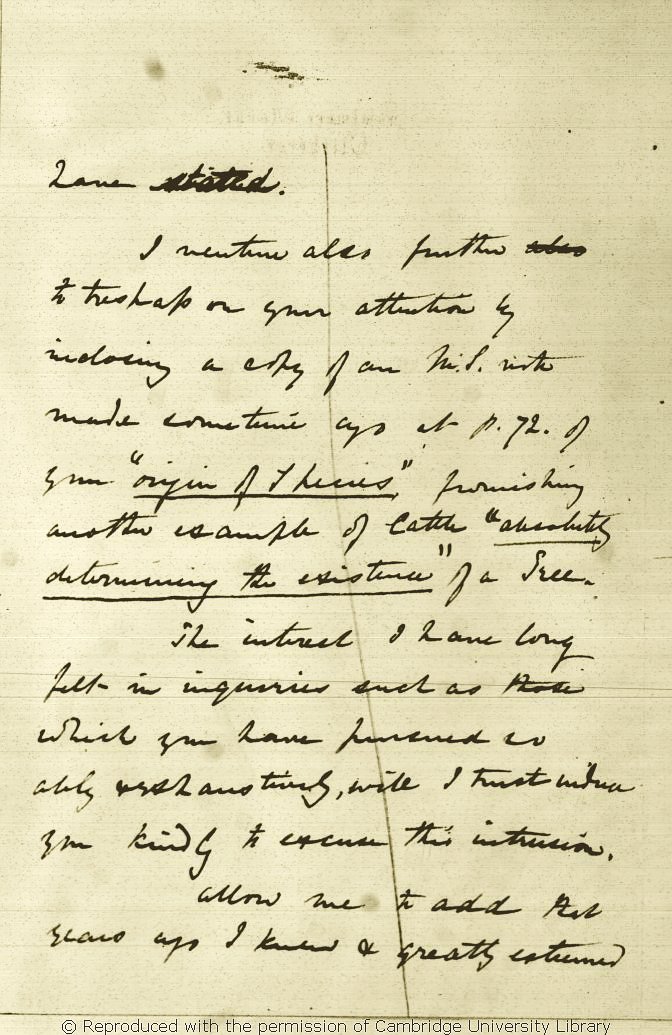 have stated.
I venture also further also
to trespass on your attention by
inclosing a copy of an M.S. note
made sometime ago at p. 72. of
your "origin of Species", furnishing
another example of Cattle "absolutely
determining the existence" of a Tree.
The interest I have long
felt in inquiries such as those
which you have pursued so
ably & exhaustively, will I trust induce
you kindly to excuse this intrusion.
Allow me to add that
years ago I knew & greatly esteemed
© Reproduced with the permission of Cambridge University Library